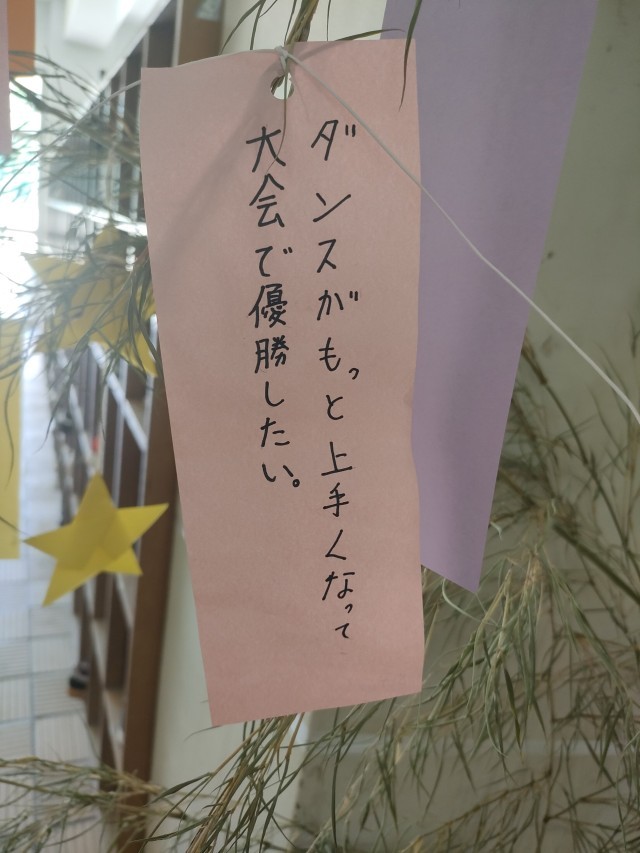 ダンスがもっと上手くなって
大会で優勝したい。